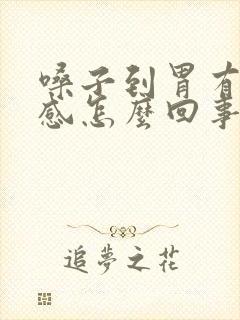 嗓子到胃有
感怎麼回事
追夢之花